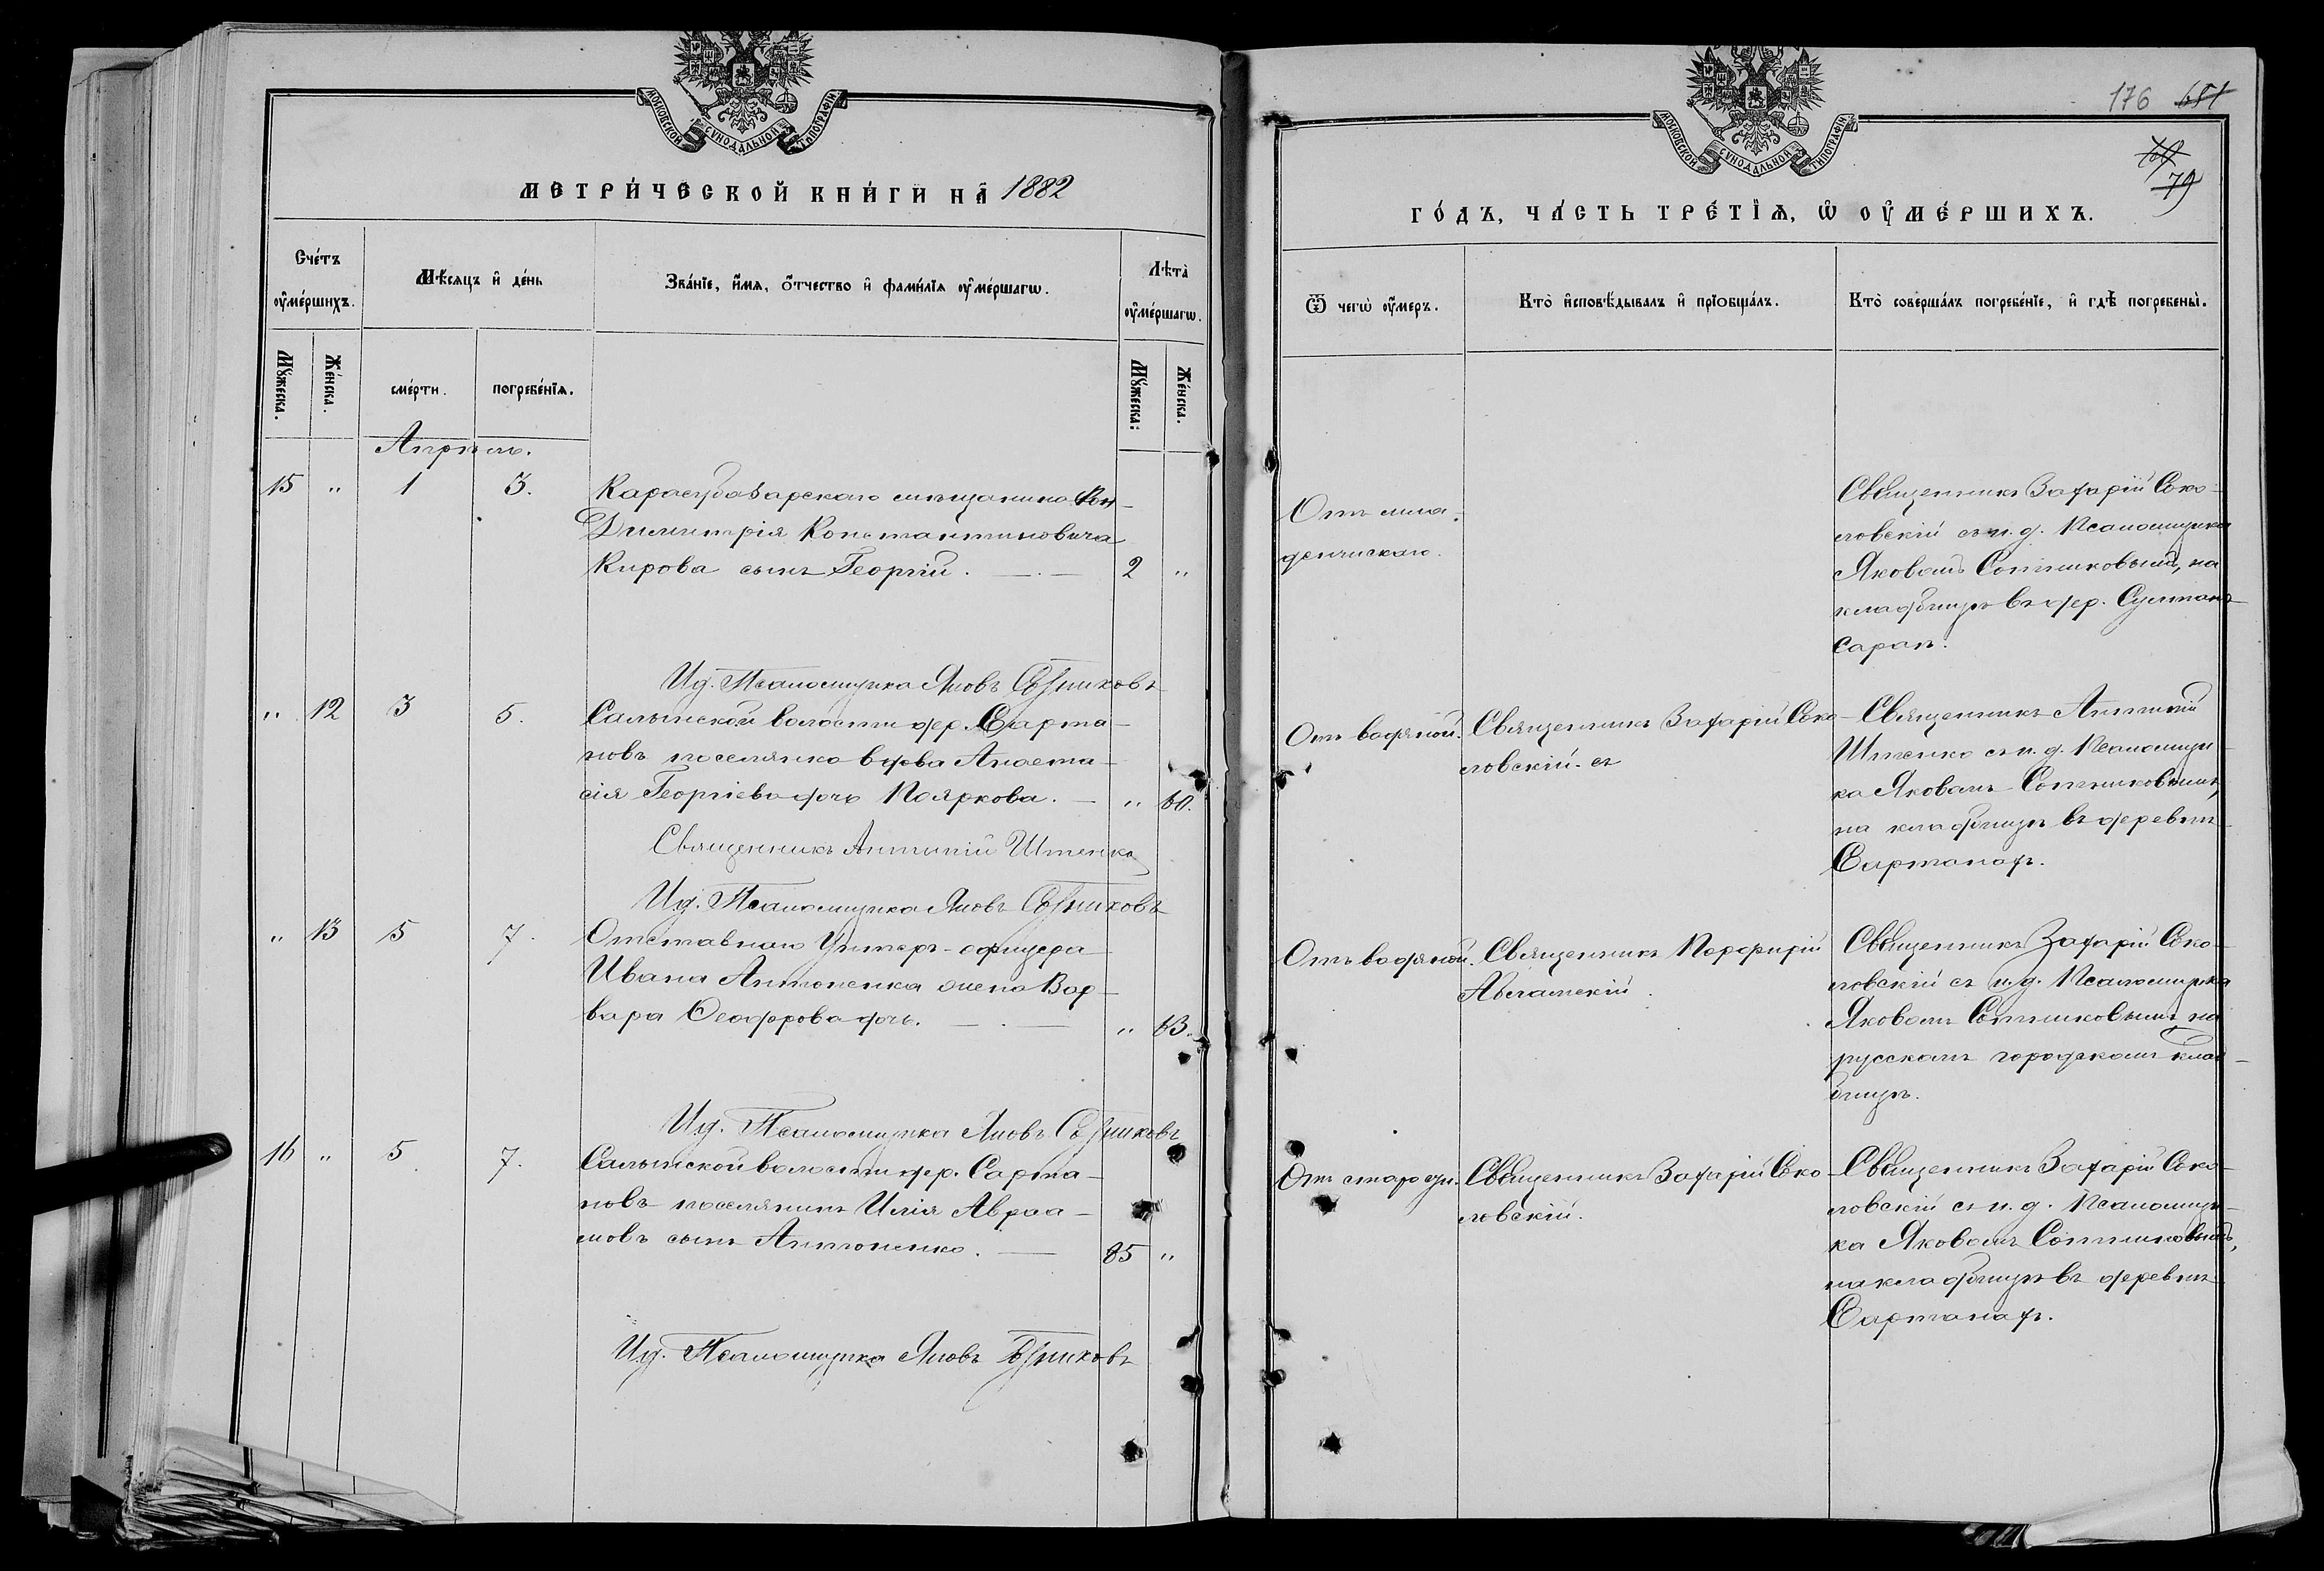 МОСКОВСКОЙ СѴНОДАЛЬНОЙ ТИПОГРАФІИ
МЕТРИ́ЧЕСКОЙ КНИ́ГИ НА̀ 1882
Сче́тъ оу҆ме́ршихъ.
Мѣ́сяцъ и҆ де́нь
Зва́нїе, и҆́мя, ѻ҆́тчество и҆ фами́лїя оу҆ме́ршагѡ.
Лѣ́та оу҆ме́ршагѡ.
Мꙋ́жеска.
Же́нска.
сме́рти.
погребе́нїя.
Мꙋ́жеска.
Же́нска.
Апрѣль.
15 " 1 3.
Карасубазарскаго мѣщанина
Димитрія Константиновича
Кирова сынъ Георгій. — 2 "
И.д. Псаломщика Яковъ Сотниковъ
" 12 3 5.
Салынской волости дер. Сарта-
новъ поселянка вдова Анаста-
сія Георгіева дочь Пояркова. — " 60.
Священникъ Антоній Штенко
И.д. Псаломщика Яковъ Сотниковъ
" 13 5 7.
Отставнаго Унтеръ-офицера
Ивана Антоненка жена Вар-
вара Ѳеодорова дочь. — " 63.
И.д. Псаломщика Яковъ Сотниковъ
16 " 5 7.
Салынской волости дер. Сарта-
новъ поселянинъ Илія Авраа-
мовъ сынъ Антоненко. — 85 "
И.д. Псаломщика Яковъ Сотниковъ
МОСКОВСКОЙ СѴНОДАЛЬНОЙ ТИПОГРАФІИ
176 681
79
ГО́ДЪ, ЧА́СТЬ ТРЕ́ТЇѦ, Ѡ҆ ОУ҆МЕ́РШИХЪ.
Ѿ чегѡ̀ оу҆́меръ.
Кто̀ и҆сповѣ́дывалъ и҆ прїобща́лъ.
Кто̀ соверша́лъ погребе́нїе, и҆ гдѣ̀ погребены̀.
Отъ мла-
денческаго.
Священникъ Захарій Соко-
ловскій съ и.д. Псаломщика
Яковомъ Сотниковымъ, на
кладбищѣ въ дер. Султанъ
Сараѣ.
Отъ водяной.
Священникъ Захарій Соко-
ловскій. съ
Священникъ Антоній
Штенко съ и.д. Псаломщи-
ка Яковомъ Сотниковымъ,
на кладбищѣ въ деревнѣ
Сартанахъ.
Отъ водяной.
Священникъ Порфирій
Священникъ Захарій Соко-
ловскій съ и.д. Псаломщика
Яковомъ Сотниковымъ на
русскомъ городскомъ клад-
бищѣ.
Отъ старости.
Священникъ Захарій Соко-
ловскій.
Священникъ Захарій Соко-
ловскій съ и.д. Псаломщи-
ка Яковомъ Сотниковымъ,
на кладбищѣ въ деревнѣ
Сартанахъ.